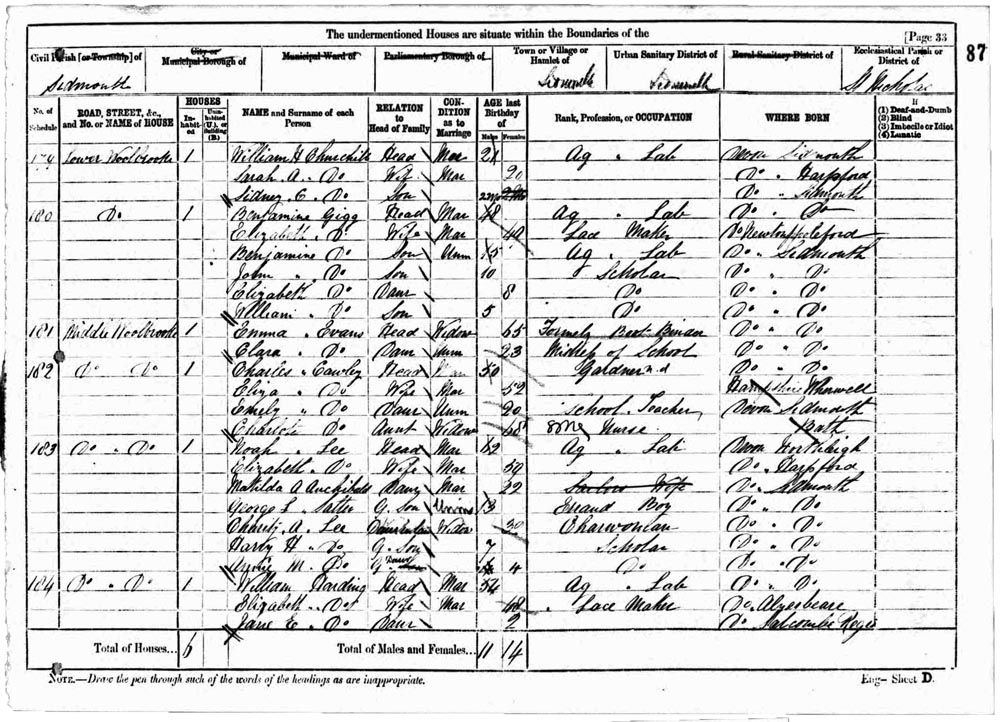 The undermentioned Houses are situate within the Boundaries of the
[Page 33
87
Civil Parish [or Township] of
City or Municipal Borough of
Municipal Ward of
Parliamentary Borough of
Town or Village or Hamlet of
Urban Sanitary District of
Rural Sanitary District of
Ecclesiastical Parish or District of
Sidmouth Sidmouth Sidmouth St Nicholas
No. of Schedule
ROAD, STREET, &c., and No. or NAME of HOUSE
HOUSES
In-habit-ed
Unin-habited (U.), or Building (B.)
NAME and Surname of each Person
RELATION to Head of Family
CON-DITION as to Marriage
AGE last Birthday of
Males Females
Rank, Profession, or OCCUPATION
WHERE BORN
If
(1) Deaf-and-Dumb
(2) Blind
(3) Imbecile or Idiot
(4) Lunatic
179 Lower Woolbrooke 1 William H Churchill Head Mar 21 Ag " Lab Devon Sidmouth
Sarah A. Do Wife Mar 20 Do " Harpford
Sidney C. Do Son Do " Sidmouth
180 Do 1 Benjamine Gigg Head Mar 48 Ag " Lab Do " Do
Elizabeth " Do Wife Mar 49 Lace Maker Do Newtonpoleford
Benjamine Do Son Unm 15 Ag " Lab Do " Sidmouth
John " Do Son 10 Scholar Do " Do
Elizabeth Do Daur 8 Do Do " Do
William " Do Son 5 Do Do " Do
181 Middle Woolbrooke 1 Emma " Evans Head Widow 65 Formely Boot Binder Do " Do
Clara " Do Daur Unm 23 Mistress of School Do " Do
182 Do Do 1 Charles " Cawley Head Mar 50 Gardner n.d Do " Do
Eliza " Do Wife Mar 52 Hampshire Wherwell
Emily " Do Daur Unm 20 School Teacher Devon Sidmouth
Charlote Do Aunt Widow 68 Nurse Bath
183 Do " Do 1 Noah " Lee Head Mar 62 Ag " Lab Devon Northleigh
Elizabeth " Do Wife Mar 59 Do " Harpford
Matilda A Archibald Daur Mar 22 Sailors Wife Do " Sidmouth
George L Salter G. Son 13 Errand Boy Do " Do
Charity A. Lee Widow 30 Charwoman Do " Do
Harry H " Do G. Son 7 Scholar Do " Do
Annie M. Do G 4 Do Do " Do
184 Do " Do 1 William Harding Head Mar 54 Ag " Lab Do " Do
Elizabeth " Do Wife Mar 48 " Lace Maker Do " Alyesbeare
Jane E " Do Daur 2 Do " Salcombe Regis
Total of Houses... 6 Total of Males and Females... 11 14
NOTE.—Draw the pen through such of the words of the headings as are inappropriate.
Eng— Sheet D.